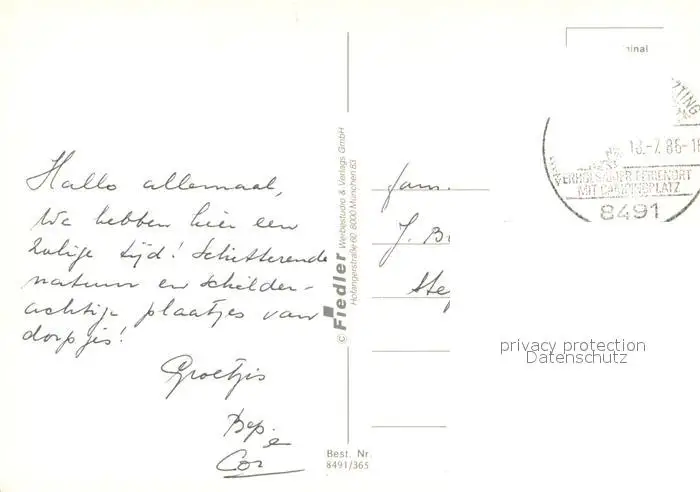 Hallo allemaal,
We hebben hier een
zalige tijd! Schitterende
natuur en schilder-
achtige plaatjes van
dorpjes!
Groetjes
Bep
e
Cor
© Fiedler Werbestudio & Verlags GmbH
Hofangerstraße 60 8000 München 83
Best. Nr.
8491/365
Fam.
J.
inal
ZTING
-7.86-18
ERHOLSAMER FERIENORT
MIT CAMPINGPLATZ
8491
privacy protection
Datenschutz